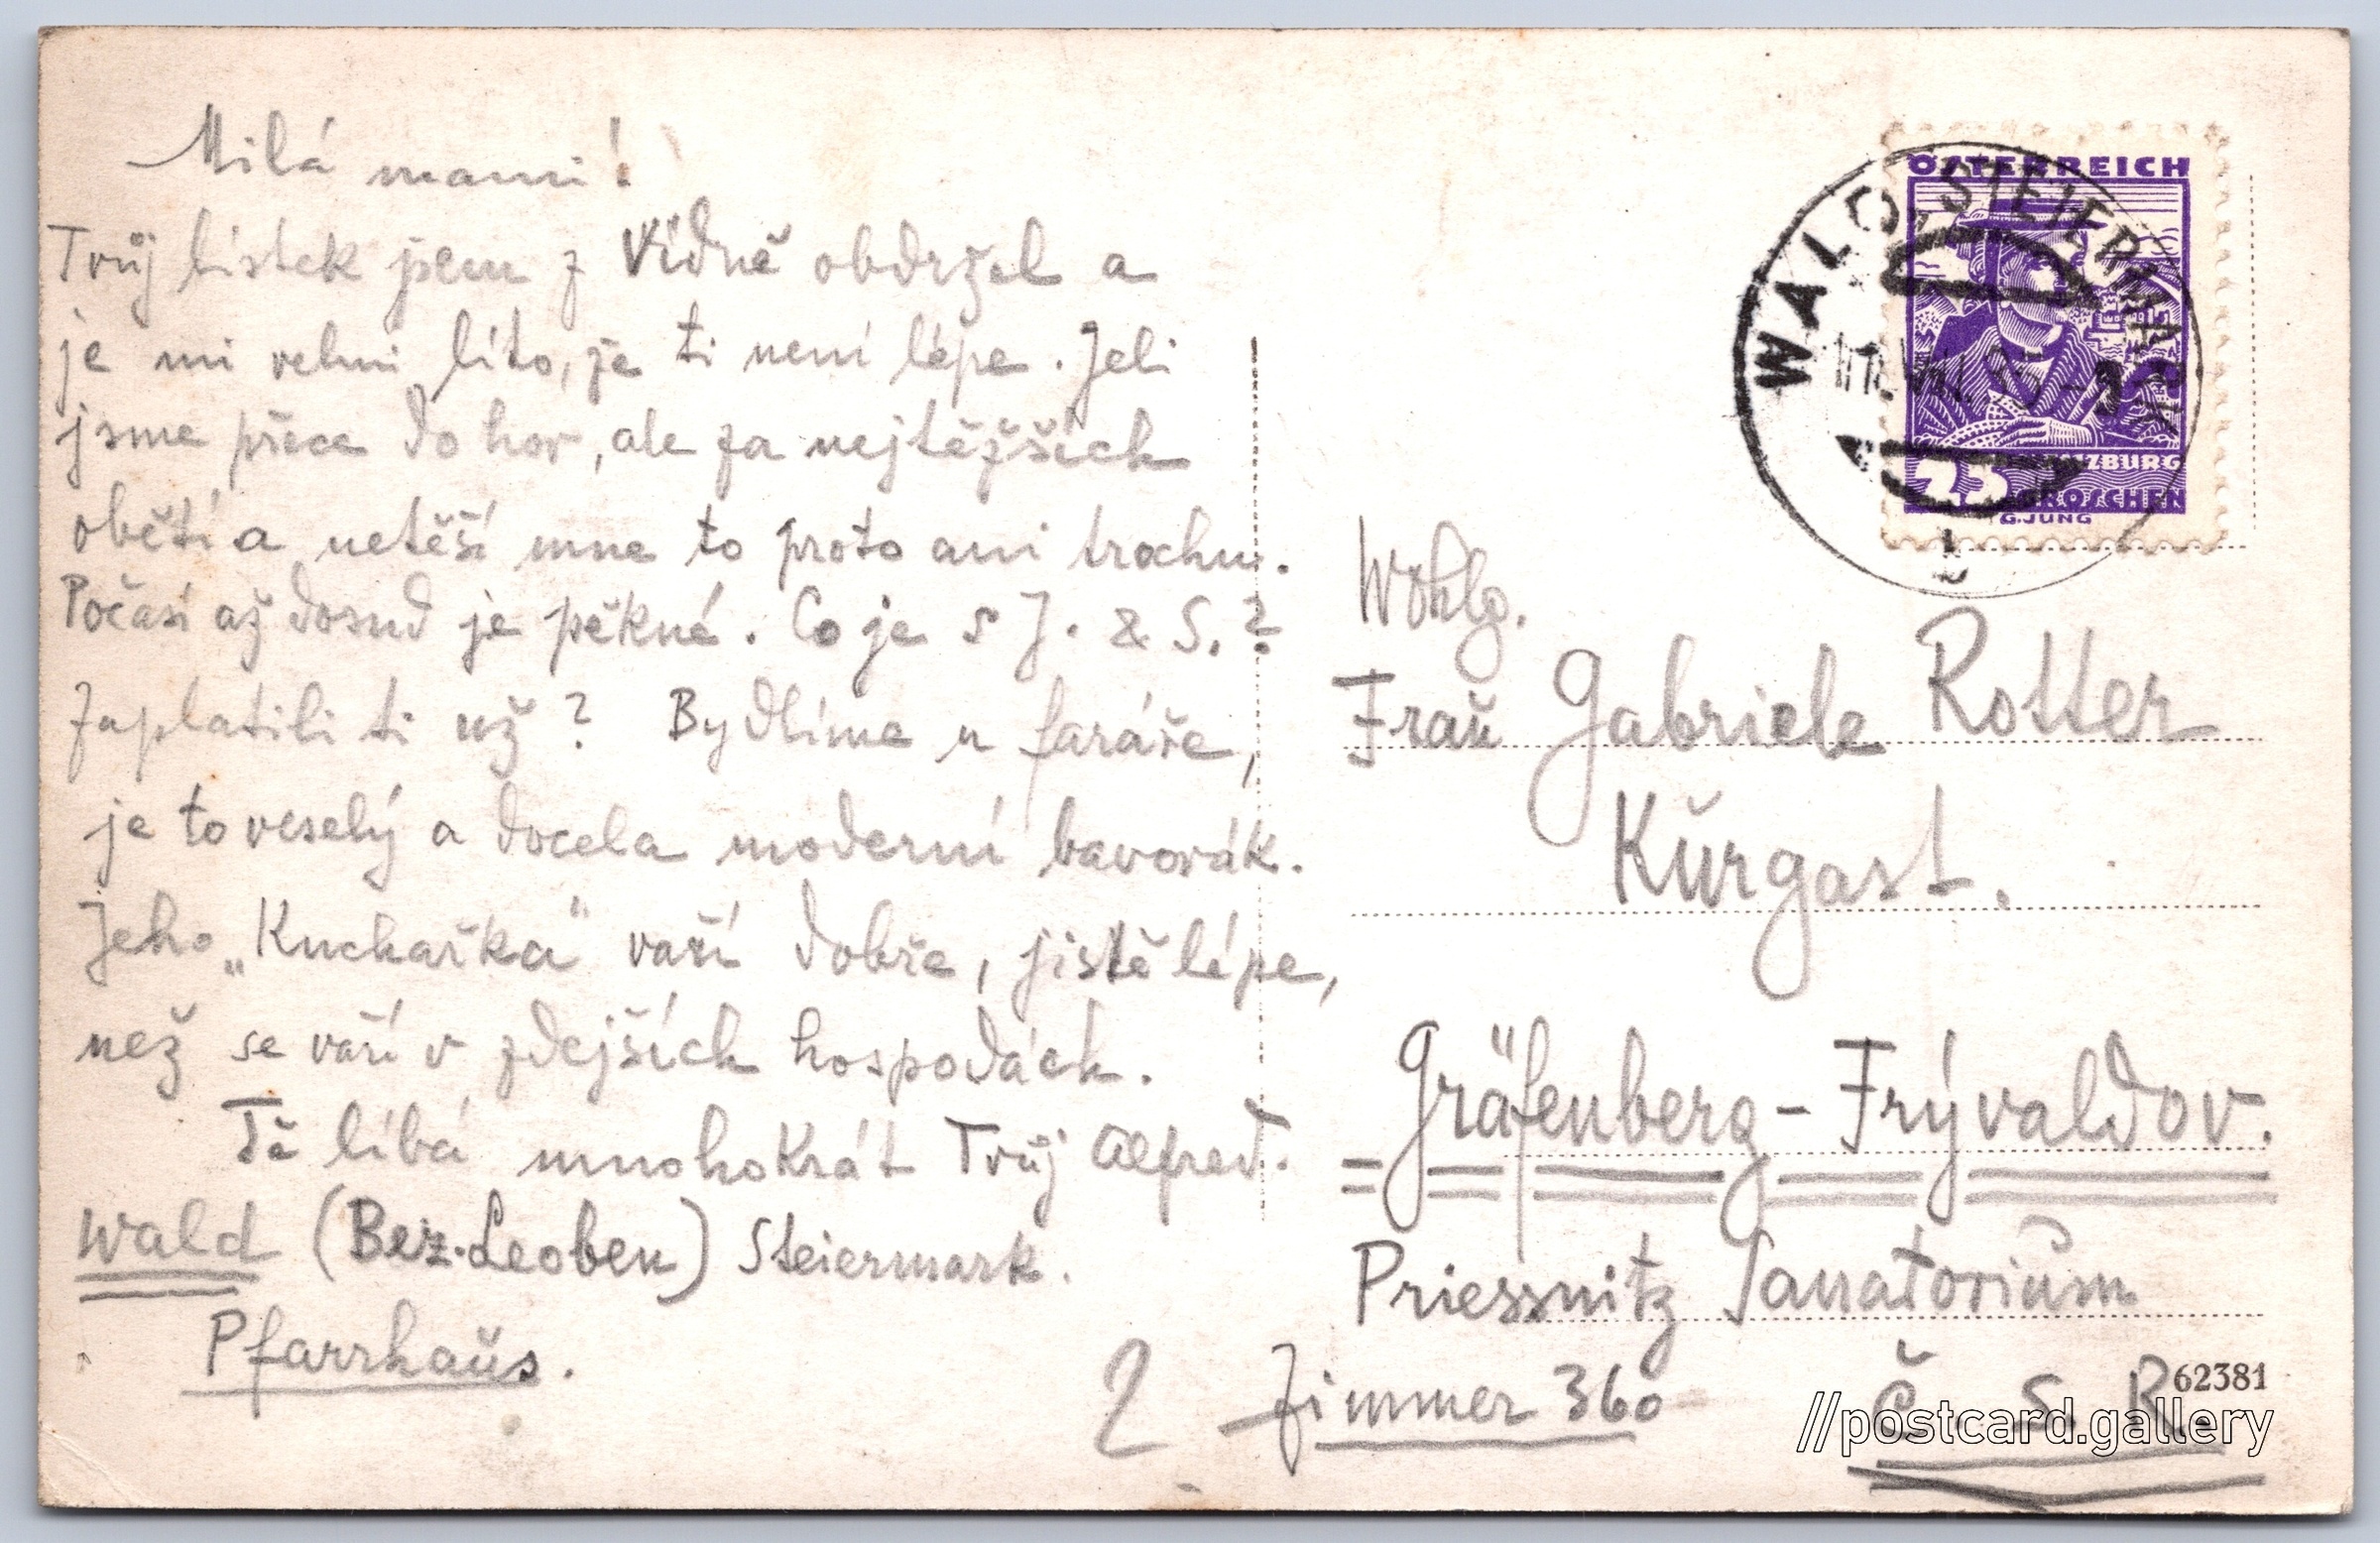 Milá mami!
Tvůj lístek jsem z Vídně obdržel a
je mi velmi líto, že ti není lépe. Jeli
jsme přece do hor, ale za nejtěžších
obětí a netěší mne to proto ani trochu.
Počasí až dosud je pěkné. Co je s J. & S.?
Zaplatili ti už? Bydlíme u faráře,
je to veselý a docela moderní bavorák.
Jeho „Kuchařka" vaří dobře, jistě lépe,
než se vaří v zdejších hospodách.
Tě líbá mnohokrát Tvůj Alfred.
Wald (Bez. Leoben) Steiermark.
Pfarrhaŭs.
ÖSTERREICH
SALZBURG
25 GROSCHEN
G. JUNG
WALD-STEIERMARK
Wohlg.
Fraŭ Gabriele Rotter
Kŭrgast.
Gräfenberg - Frývaldov.
Priessnitz Sanatoriŭm
2 Zimmer 360
Č. S. R.
62381
//postcard.gallery